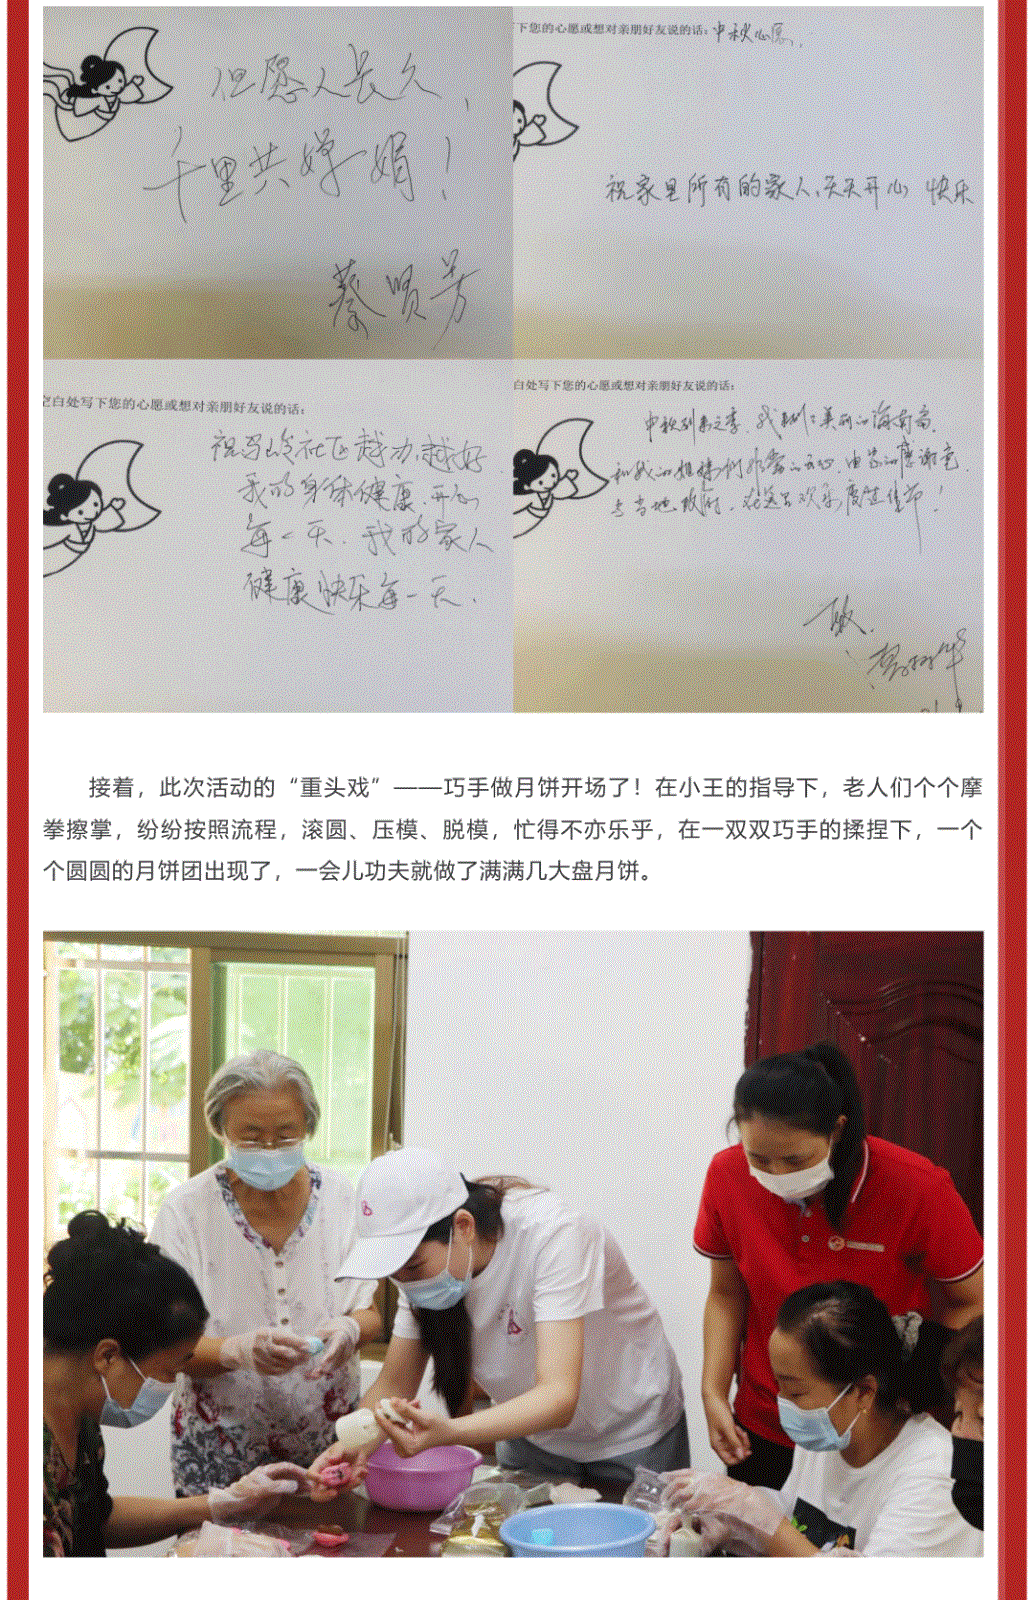 但愿人长久,
千里共婵娟！
蔡贤芳
下您的心愿或想对亲朋好友说的话：中秋心愿,
祝家里所有的家人、天天开心 快乐
空白处写下您的心愿或想对亲朋好友说的话：
祝马岭社区越办,越好
我的身体健康.开心
每一天.我的家人
健康快乐每一天.
白处写下您的心愿或想对亲朋好友说的话：
中秋到来之季,我来到美丽的海南岛.
和我的姐妹们非常的开心,由衷的感谢党
与当地政府,在这里欢乐度过佳节！
接着，此次活动的“重头戏”——巧手做月饼开场了！在小王的指导下，老人们个个摩
拳擦掌，纷纷按照流程，滚圆、压模、脱模，忙得不亦乐乎，在一双双巧手的揉捏下，一个
个圆圆的月饼团出现了，一会儿功夫就做了满满几大盘月饼。